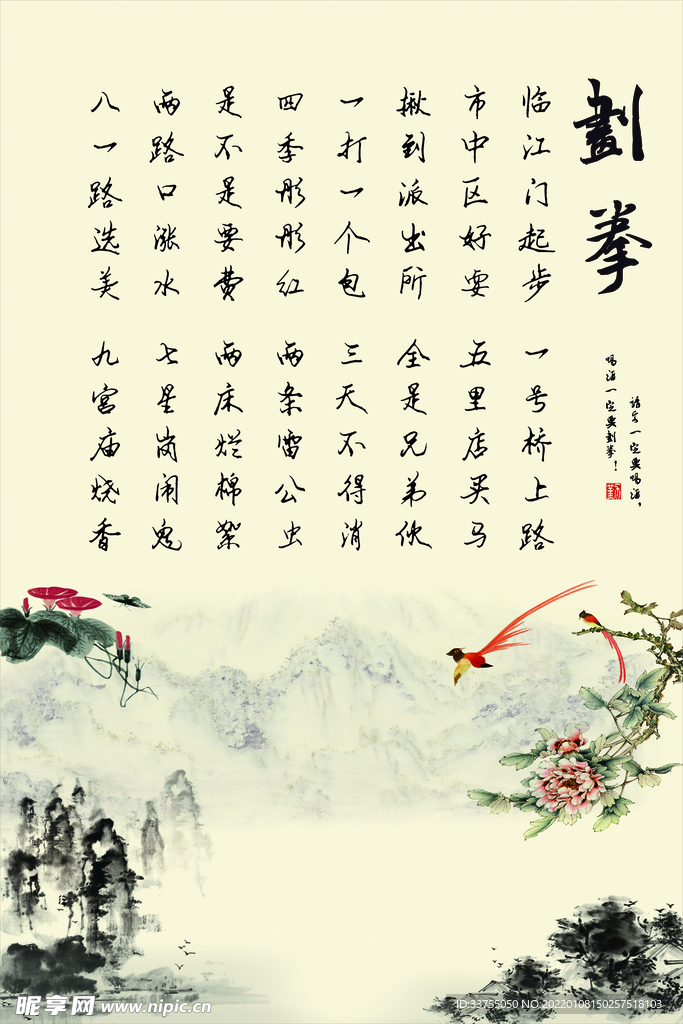 劃拳
请客一定要喝酒，
喝酒一定要劃拳！
临江门起步 一号桥上路
市中区好耍 五里店买马
揪到派出所 全是兄弟伙
一打一个包 三天不得消
四季彤彤红 两条雷公虫
是不是要费 两床烂棉絮
两路口涨水 七星岗闹鬼
八一路选美 九宫庙烧香
昵享网 www.nipic.cn
ID:33755050 NO:20220108150257518103